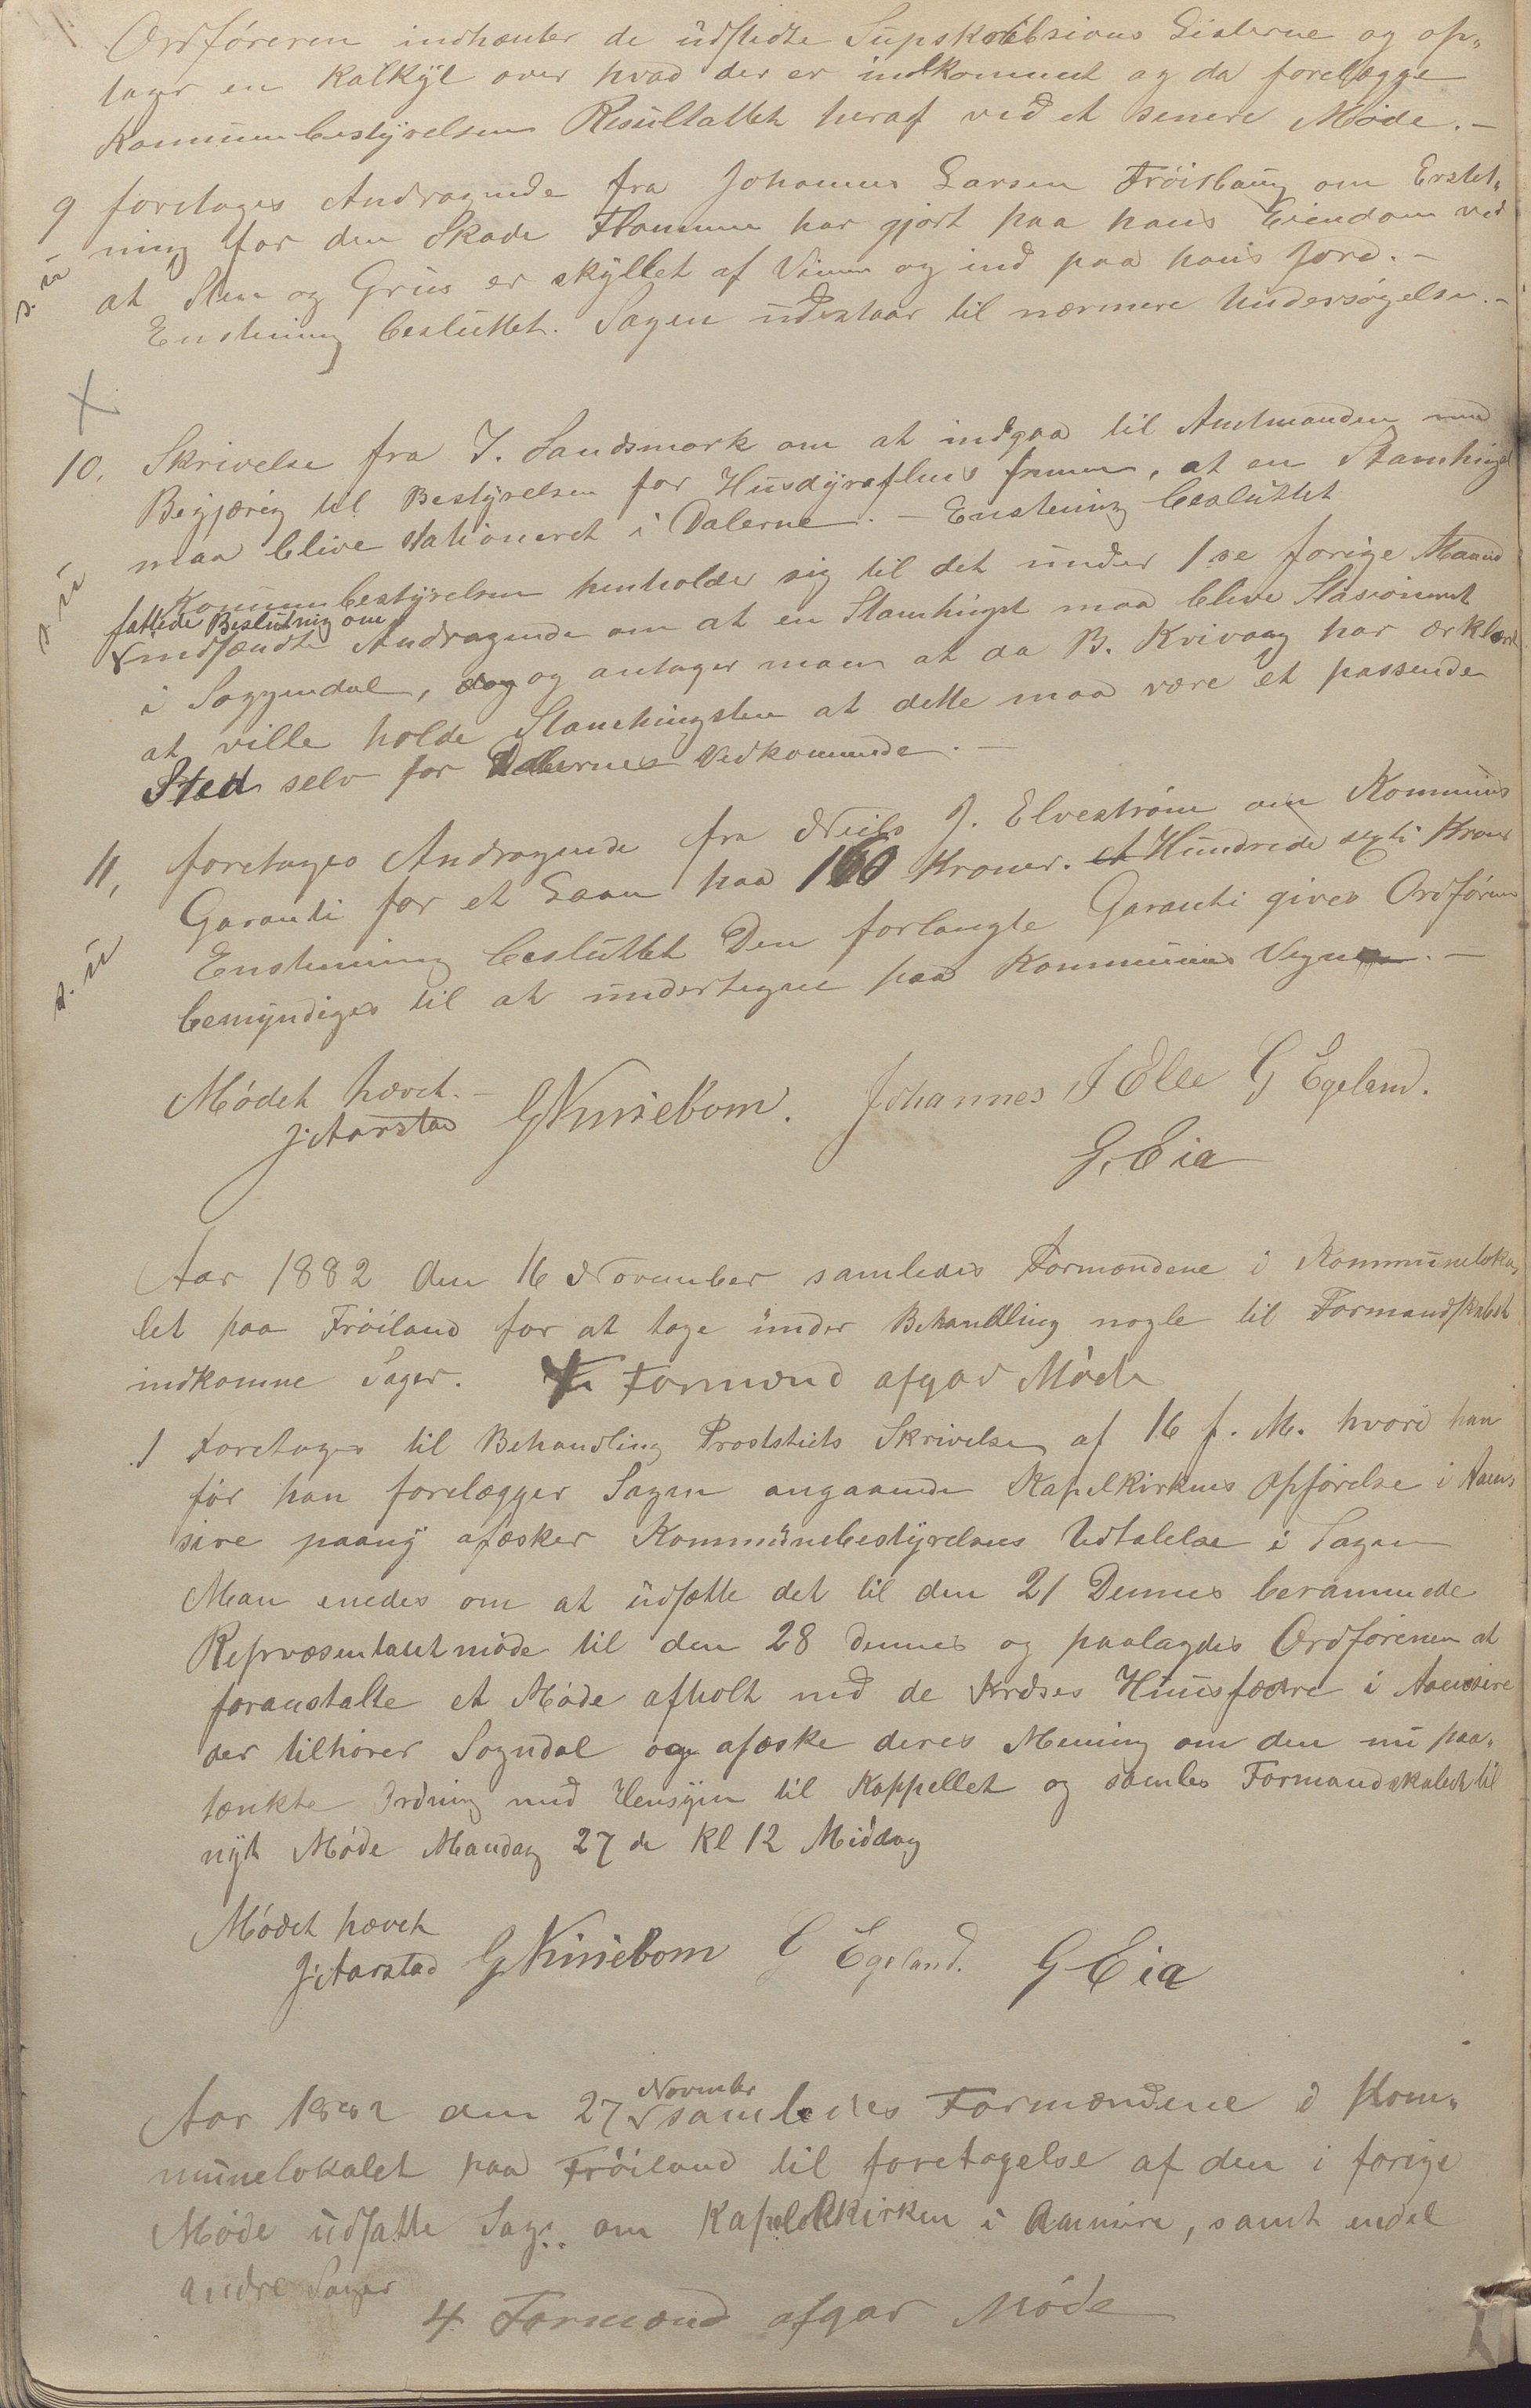 Ordføreren indhenter de udstedte Supskribsions Listerne og op„
tager en Kalkyl over hvad der er indkommet og da forelægge
Kommunebestyrelsen Resultattet heraf ved et senere Møde. –
9 foretages Andragende fra Johannes Larsen Frøisbaug om Erstat„
ning for den Skade Flommen har gjort paa hans Eiendom ved
at Sten og Grus er skyllet af Veien og ind paa hans Jord. –
Enstemig besluttet. Sagen udestaar til nærmere Undersøgelse. –
10, Skrivelse fra J. Sandsmark om at indgaa til Amtmanden med
Begjæring til Bestyrelsen for Husdyraflens fremme, at en Stamhingst
maa blive stationeret i Dalerne. – Enstemig besluttet
Kommunebestyrelsen henholder sig til det under 1se forige Maaned
fattede Beslutning om
indsendte Andragende om at en Stamhingst maa blive Stasioneret
i Soggendal, og antager man at da B. Kvivaag har erklæret
at ville holde Stamhingsten at dette maa være et passende
Sted selv for Dalernes Vedkommende. –
11, foretages Andragende fra Neils J. Elvestrøm om Kommunes
Garanti for et Laan paa 160 Kroner. et Hundrede sexti Kroner
Enstemmig besluttet Den forlangte Garanti gives Ordføreren
bemyndiges til at undertegne paa Kommunens Vegne. –
Mødet hævet. –
J. Aarstad GNuniebom. Johannes J Elle G Egeland.
G. Eia
Aar 1882 den 16 November samledes Formændene i Kommuneloka„
let paa Frøiland for at tage under Behandling nogle til Formandskabet
indkomne Sager. Formænd afgav Møde
1 Foretages til Behandling Provstiets Skrivelse af 16 f. M. hvori han
før han forelægger Sagen angaaende Kapelkirkens Opførelse i Aaen„
sire paany afæsker Kommunebestyrelsens Udtalelse i Sagen
Man enedes om at udsætte det til den 21 Dennes berammede
Repræsentantmøde til den 28 dennes og paalagdes Ordføreren at
foranstalte et Møde afholt med de Kredses Huusfædre i Aaensire
der tilhører Sogndal og afæske deres Mening om den nu paa„
tænkte Ordning med Hensyn til Kappellet og samles Formandskabet til
nyt Møde Mandag 27 de Kl 12 Middag
Mødet hævet
J. Aarstad GNuniebom G Egeland. G Eia
November
Aar 1882 den 27 samledes Formændene i Kom„
munelokalet paa Frøiland til foretagelse af den i forige
Møde udsatte Sag om Kapelkirken i Aaensire, samt endel
andre Sager
4 Formænd afgav Møde